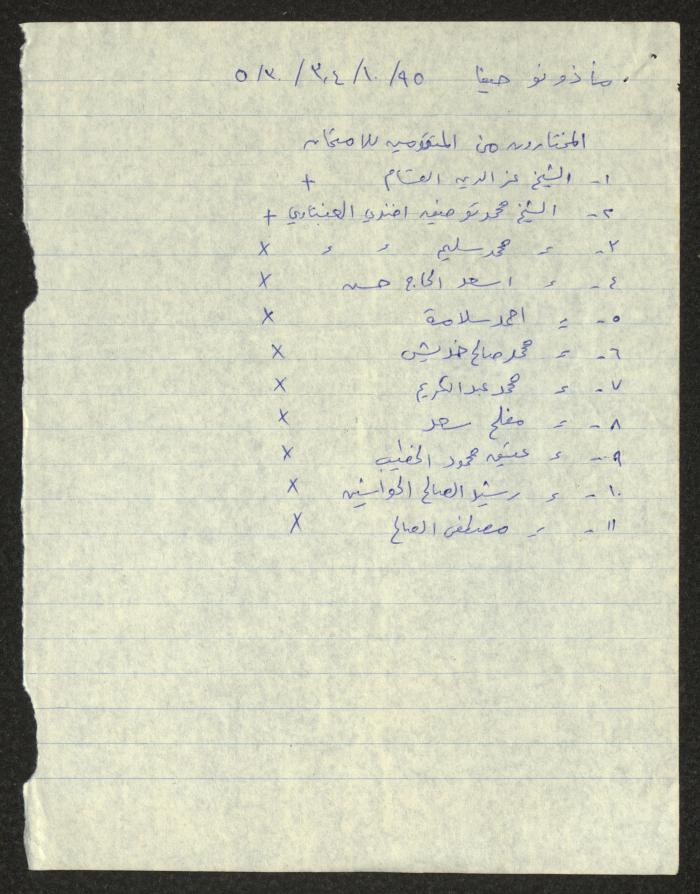 مأذونو حيفا ٩٥/١٠/٣،٤/٥/٣٠
المختارون من المتقدمين للامتحان
١- الشيخ عز الدين القسام +
٢- الشيخ محمد توفيق افندي العنبتاوي +
٣- ء محمد سليم ء ء X
٤- ء اسعد الحاج حسن X
٥- ء احمد سلامة X
٦- ء محمد صالح X
٧- ء محمد عبد الكريم X
٨- ء مفلح سعد X
٩- ء محمود الخطيب X
١٠- ء رشيد الصالح X
١١- ء مصطفى الصالح X